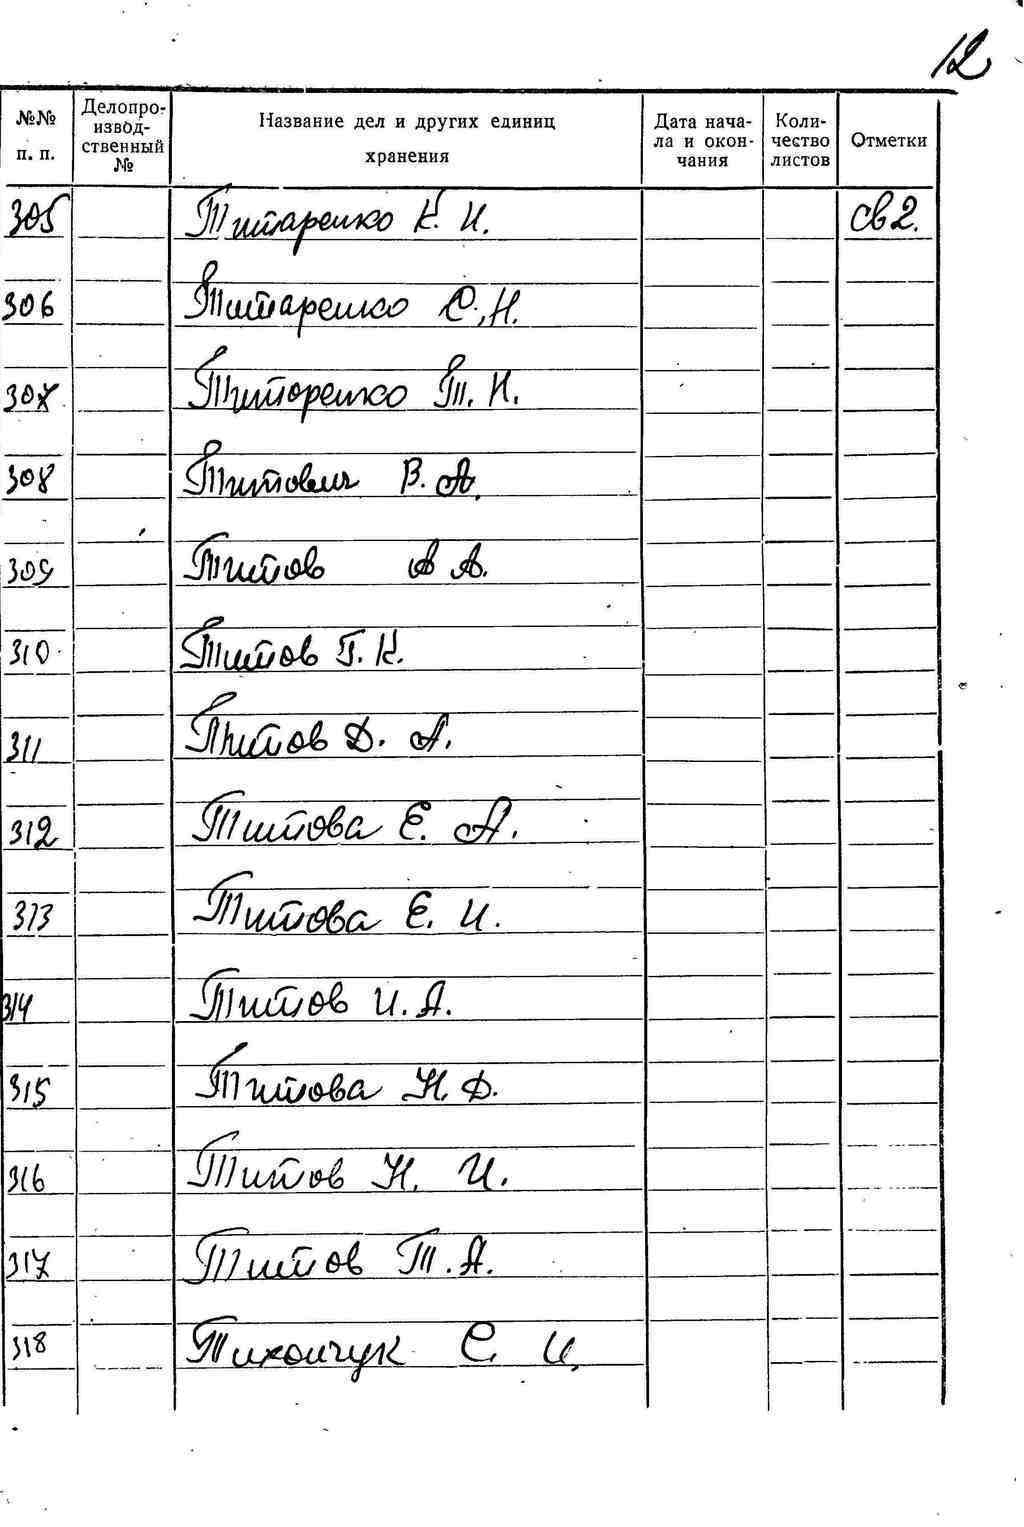 12
№№ п. п. Делопроизводственный № Название дел и других единиц хранения Дата начала и окончания Количество листов Отметки
305 Титаренко К. И. св 2.
306 Титаренко С. Н.
307 Титоренко Т. Н.
308 Титович В. А.
309 Титов А А.
310 Титов Г. К.
311 Титов Д. А.
312 Титова Е. А.
313 Титова Е. И.
314 Титов И. А.
315 Титова Н. Д.
316 Титов Н. И.
317 Титов Т. А.
318 Тихончук С. И.